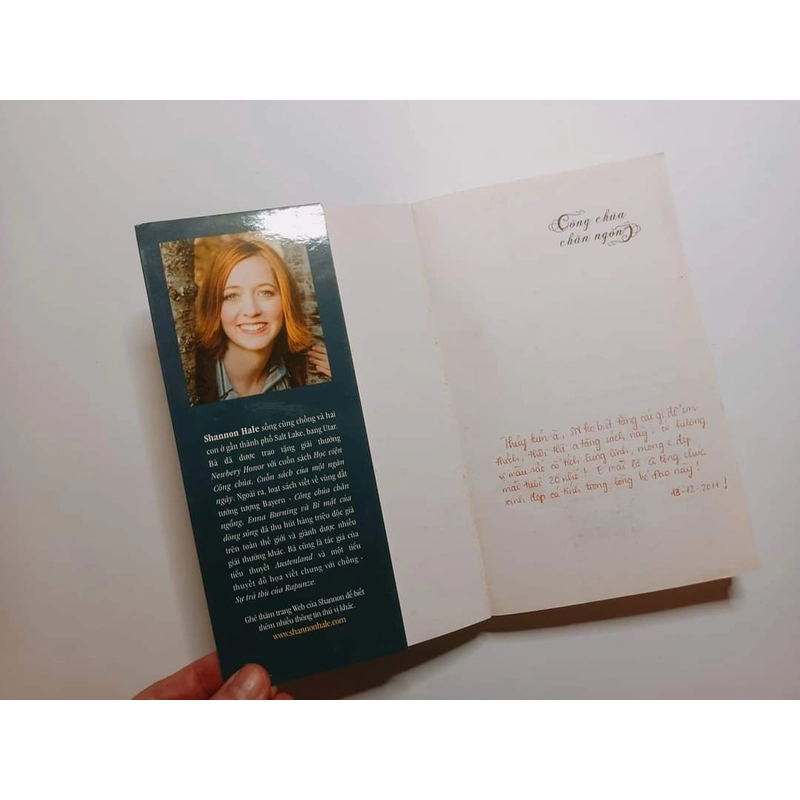 Shannon Hale sống cùng chồng và hai
con ở gần thành phố Salt Lake, bang Utar.
Bà đã được trao tặng giải thưởng
Newbery Honor với cuốn sách Học viện
Công chúa, Cuốn sách của một ngàn
ngày. Ngoài ra, loạt sách viết về vùng đất
tưởng tượng Bayern - Công chúa chăn
ngỗng, Enna Burning và Bí mật của
dòng sông đã thu hút hàng triệu độc giả
trên toàn thế giới và giành được nhiều
giải thưởng khác. Bà cũng là tác giả của
tiểu thuyết Austenland và một tiểu
thuyết đồ họa viết chung với chồng -
Sự trả thù của Rapunze.
Ghé thăm trang Web của Shannon để biết
thêm nhiều thông tin thú vị khác.
www.shannonhale.com
Công chúa
chăn ngỗng
Thủy bún à, SN ko biết tặng cái gì để em
thích, thôi thì a tặng sách này, có tương
vị màu sắc cổ tích, lung linh, mong e đẹp
mãi tuổi 20 nhé! E mãi là cô công chúa
xinh đẹp cá tính trong lòng
18-12-2011!